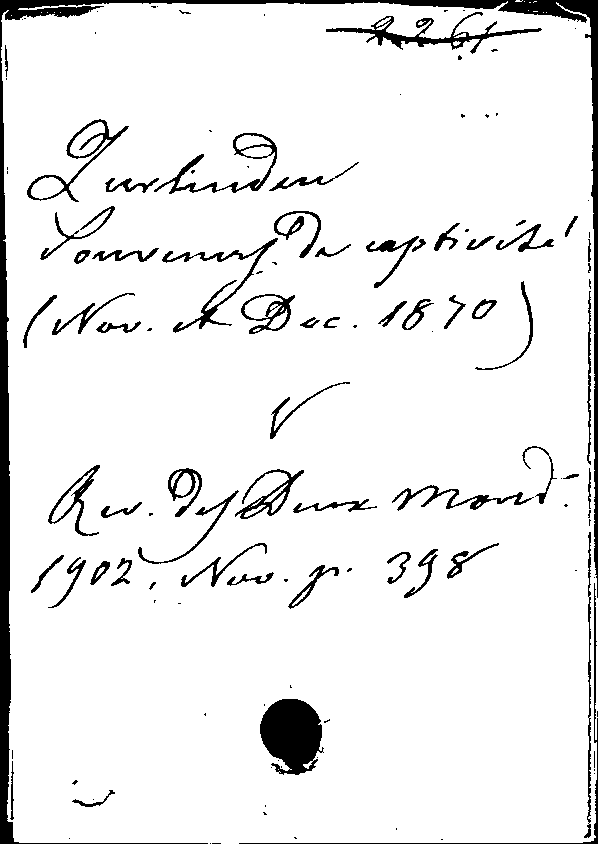 2261.
Zurlinden
Souvenirs de captivité
(Nov. et Dec. 1870)
V
Rev. des Deux Mond.
1902, Nov. p. 398